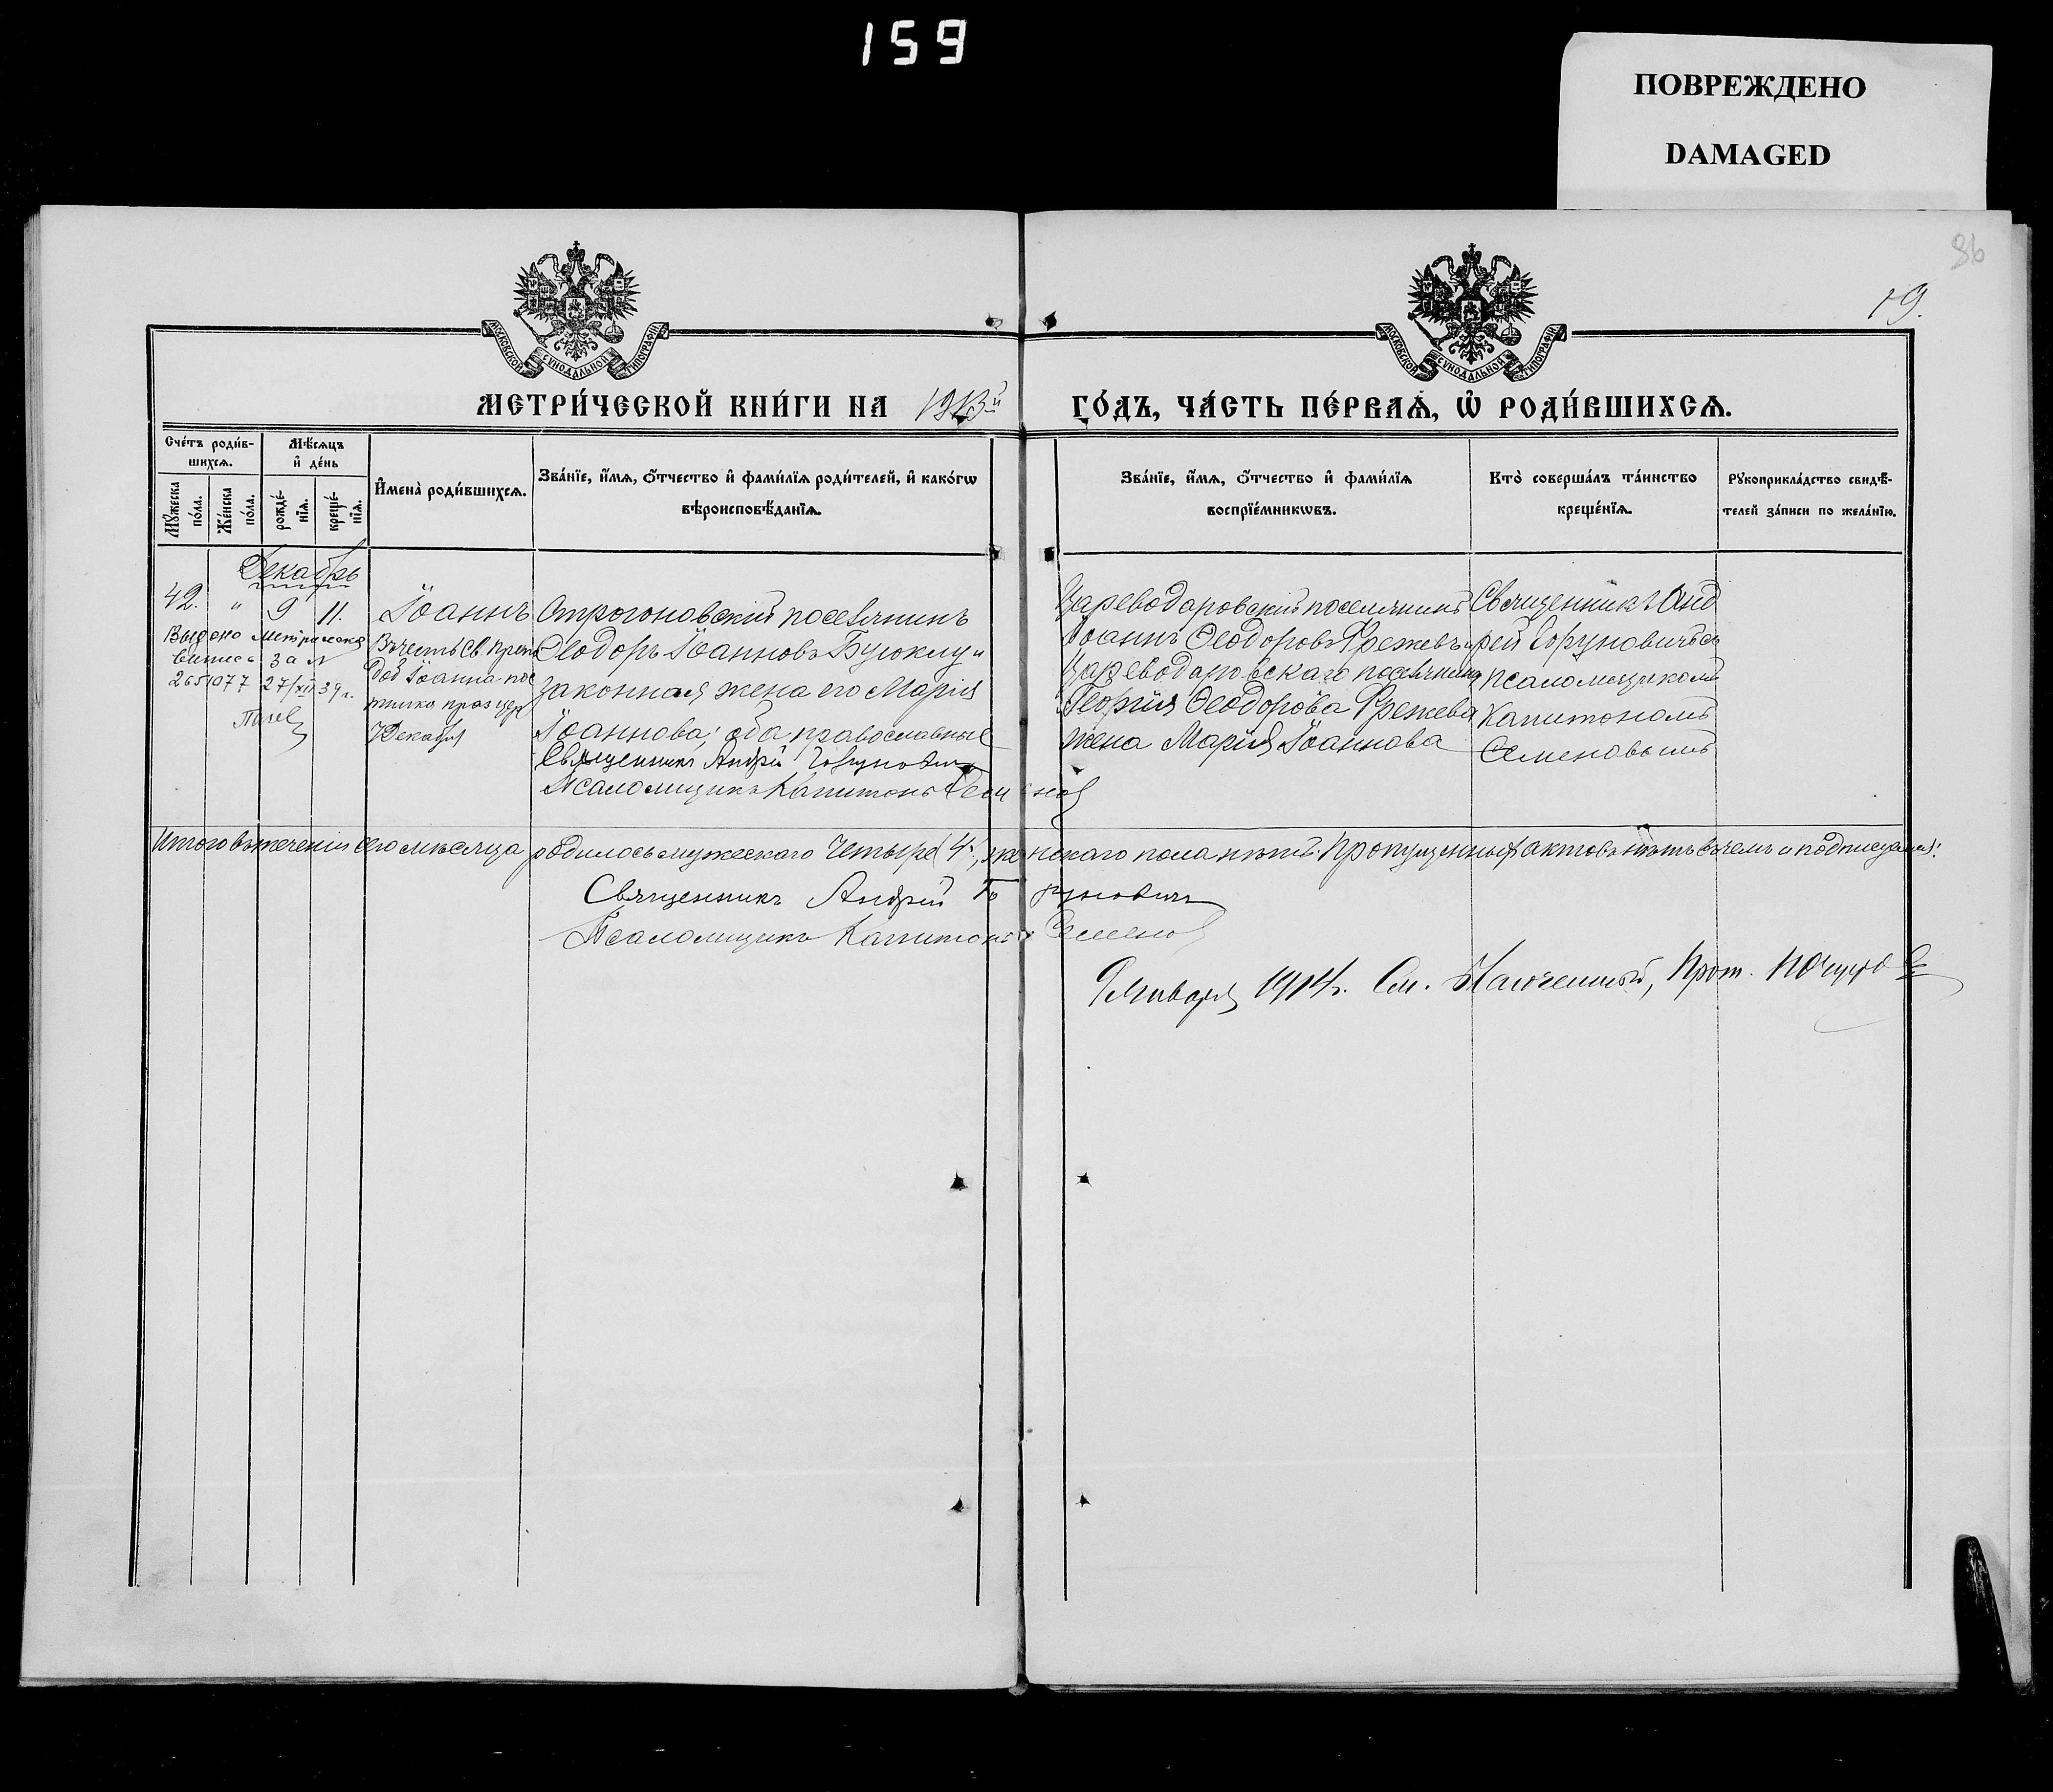 159
ПОВРЕЖДЕНО
DAMAGED
86
19.
МОСКОВСКОЙ СУНОДАЛЬНОЙ ТИПОГРАФІИ
МОСКОВСКОЙ СУНОДАЛЬНОЙ ТИПОГРАФІИ
МЕТРИ́ЧЕСКОЙ КНИ́ГИ НА 1913й ГО́ДЪ, ЧА́СТЬ ПЕ́РВАѦ, Ѡ҆ РОДИ́ВШИХСѦ.
Сче́тъ роди́в-
шихсѧ.
Мѣ́сѧцъ
и҆ де́нь
Мꙋ́жеска
по́ла.
Же́нска
по́ла.
рожде́-
нїѧ.
креще́-
нїѧ.
И҆мена̀ роди́вшихсѧ.
Зва́нїе, и҆́мѧ, ѻ҆́тчество и҆ фами́лїѧ роди́телей, и҆ како́гѡ
вѣроисповѣ́данїѧ.
Зва́нїе, и҆́мѧ, ѻ҆́тчество и҆ фами́лїѧ
воспрїе́мникѡвъ.
Кто̀ соверша́лъ та́инство
креще́нїѧ.
Рꙋкоприкла́дство свидѣ́-
телей за́писи по жела́нїю.
Декабрь
42. " 9 11.
Выдано метрическая
выпись за №
2651077 27/XII 39 г.
Іоаннъ
Въ честь Св. Преп
Іоанна пос
празд
7 Декабря
Строгоновскій поселянинъ
Ѳеодоръ Іоанновъ Буюклу и
законная жена его Марія
Іоаннова; оба православные
Священникъ Андрей Горуновичъ
Псаломщикъ Капитонъ Семенов
Цареводаровскій поселянинъ
Іоаннъ Ѳеодоровъ Фрежевъ и
Цареводаровскаго поселянина
Георгія Ѳеодорова Фрежева
жена Марія Іоаннова
Священникъ Анд
рей Горуновичъ съ
псаломщикомъ
Капитономъ
Семеновымъ
Итого въ теченіи сего мѣсяца родилось мужескаго четыре (4), женскаго пола нѣтъ. Пропущенныхъ актовъ нѣтъ въ чемъ и подписуемся:
Священникъ Андрей Горуновичъ
Псаломщикъ Капитонъ Семенов
Января 1914 г. См. Благочинный, Прот.